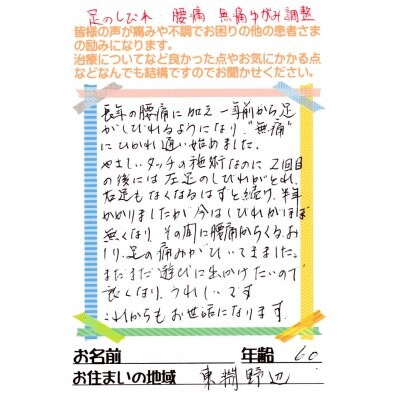 足のしびれ 腰痛 無痛ゆがみ調整
皆様の声が痛みや不調でお困りの他の患者さま
の励みになります。
治療についてなど良かった点やお気にかかる点
などなんでも結構ですのでお聞かせください。
長年の腰痛に加え一年前から足
がしびれるようになり、"無痛"
にひかれ通い始めました。
やさしいタッチの施術なのに2回目
の後には左足のしびれがとれ、
右足もなくなるはずと縋り、半年
かかりましたが今はしびれがほぼ
無くなり、その間に腰痛からくる、お
しり、足の痛みがひいてきました。
まだまだ遊びに出かけたいので
良くなり、うれしいです
これからもお世話になります。
お名前 年齢 60
お住まいの地域 東淵野辺